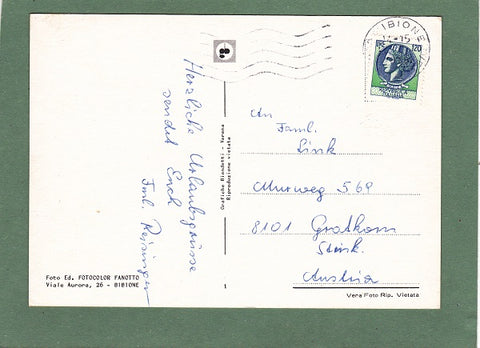 Herzliche Urlaubsgrüsse
sendet Euch
Fml. Reisinger
Foto Ed. FOTOCOLOR FANOTTO
Viale Aurora, 26 - BIBIONE
Grafiche Bianchetti - Verona
Riproduzione vietata
1
BIBIONE
120
An
Faml.
Link
Murweg 569
8101 Gratkorn
Stmk.
Austria
Vera Foto Rip. Vietata